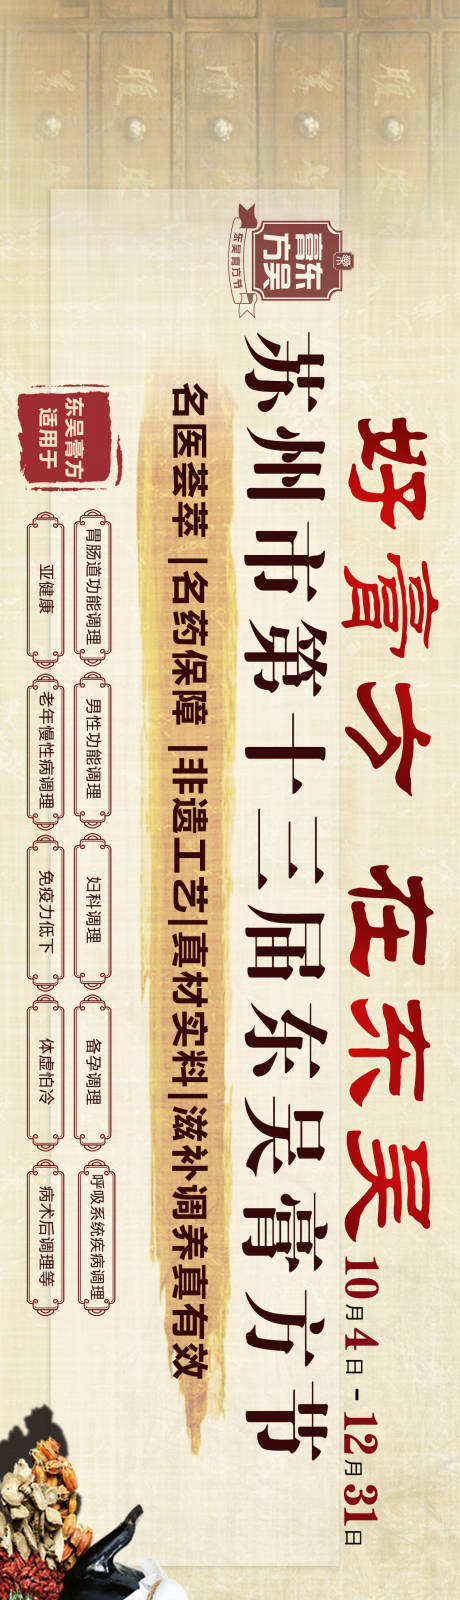 好膏方 在东吴
10月4日-12月31日
东吴
膏方
东吴膏方节
苏州市第十三届东吴膏方节
名医荟萃|名药保障|非遗工艺|真材实料|滋补调养真有效
东吴膏方
适用于
胃肠道功能调理
男性功能调理
妇科调理
备孕调理
呼吸系统疾病调理
亚健康
老年慢性病调理
免疫力低下
体虚怕冷
病术后调理等